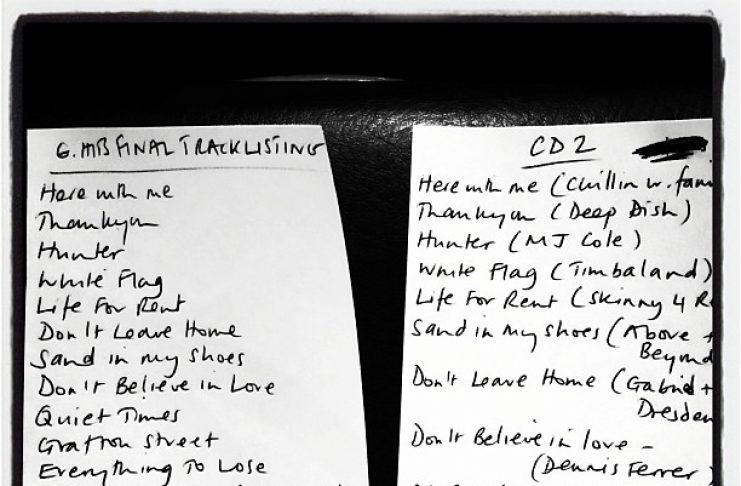 G. Hits FINAL TRACKLISTING
Here with me
Thankyou
Hunter
White Flag
Life For Rent
Don't Leave Home
Sand in my shoes
Don't Believe in Love
Quiet Times
Grafton street
Everything To Lose
CD 2
Here with me (Chillin w. fami
Thankyou (Deep Dish)
Hunter (MJ Cole)
White Flag (Timbaland)
Life For Rent (Skinny 4 R
Sand in my shoes (Above +
Beyond
Don't Leave Home (Gabriel +
Dresden
Don't Believe in love -
(Dennis Ferrer)